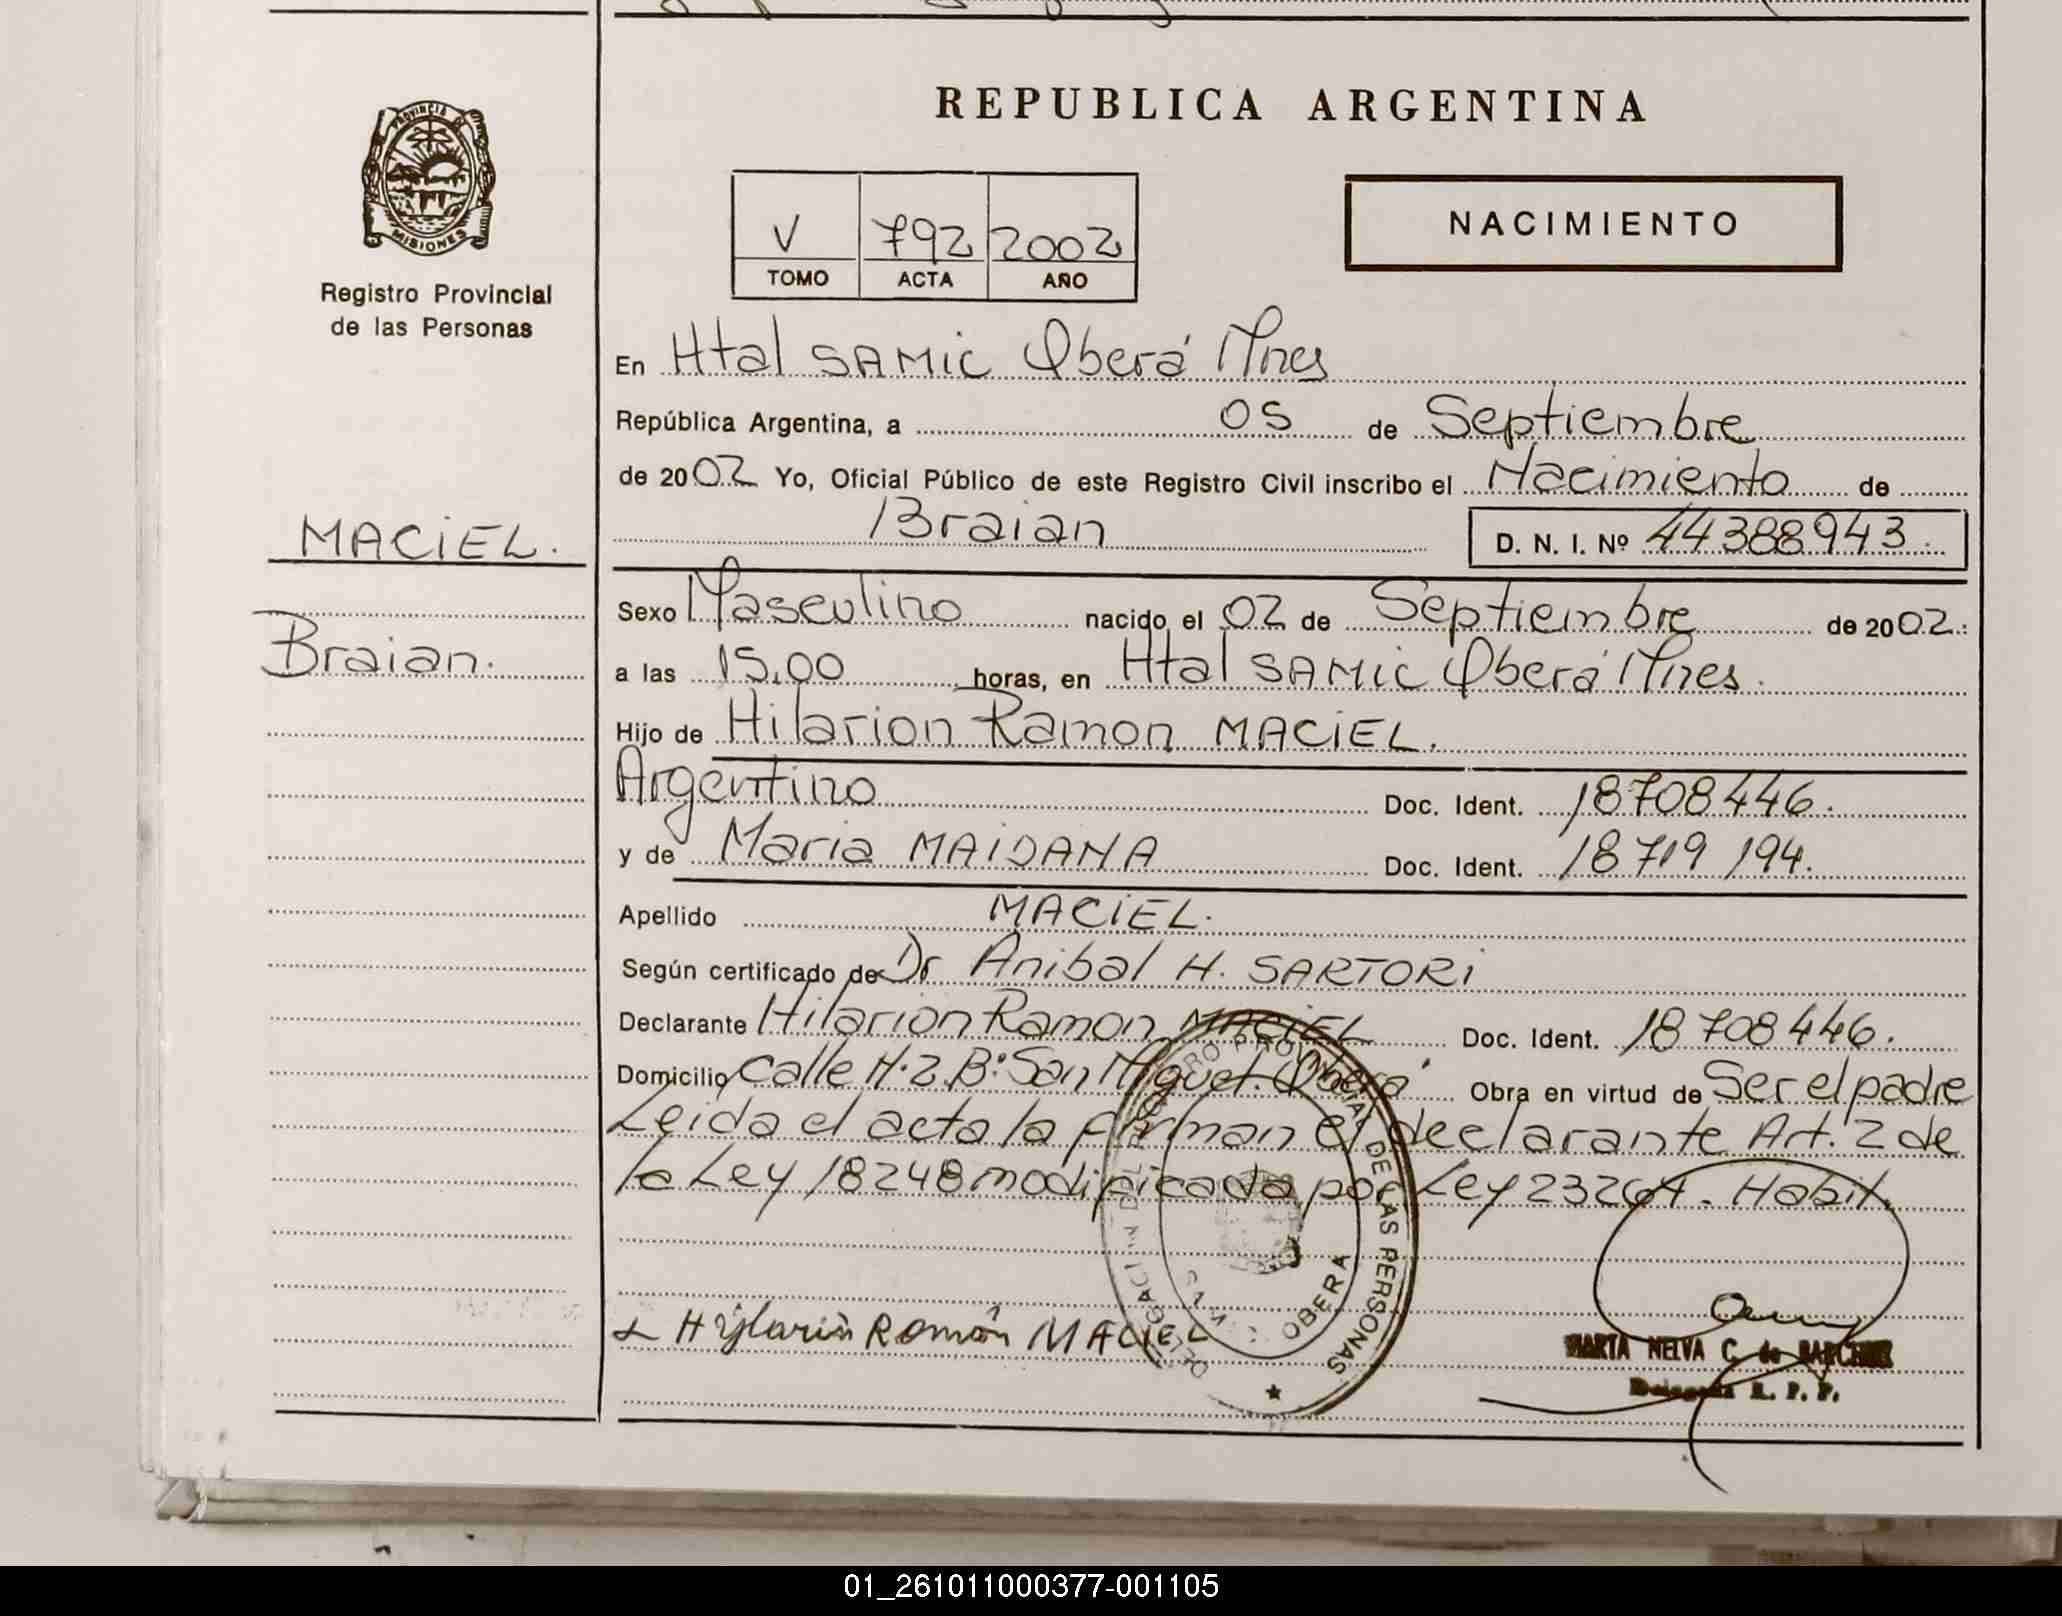 REPUBLICA ARGENTINA
PROVINCIA DE
MISIONES
Registro Provincial
de las Personas
V 792 2002
TOMO ACTA AÑO
NACIMIENTO
En Htal SAMIC Oberá Mnes
República Argentina, a 05 de Septiembre
de 2002 Yo, Oficial Público de este Registro Civil inscribo el Nacimiento de
MACIEL.
Braian D. N. I. Nº 44388943
Sexo Masculino nacido el 02 de Septiembre de 2002.
Braian.
a las 15,00 horas, en Htal SAMIC Oberá Mnes.
Hijo de Hilarion Ramon MACIEL.
Argentino Doc. Ident. 18708446.
y de Maria MAIDANA Doc. Ident. 18719194.
Apellido MACIEL.
Según certificado de Dr Anibal H. SARTORI
Declarante Hilarion Ramon MACIEL Doc. Ident. 18708446.
Domicilio calle N.2 B: San Miguel. Oberá Obra en virtud de Ser el padre
Leida el acta la firman el declarante Art. 2 de
la Ley 18248 modificada por Ley 23264. Habil.
REGISTRO PROVINCIAL DE LAS PERSONAS
OBERA
Hijlarion Román MACIEL
MARTA NELVA C. de
Delegada R. P. P.
01_261011000377-001105